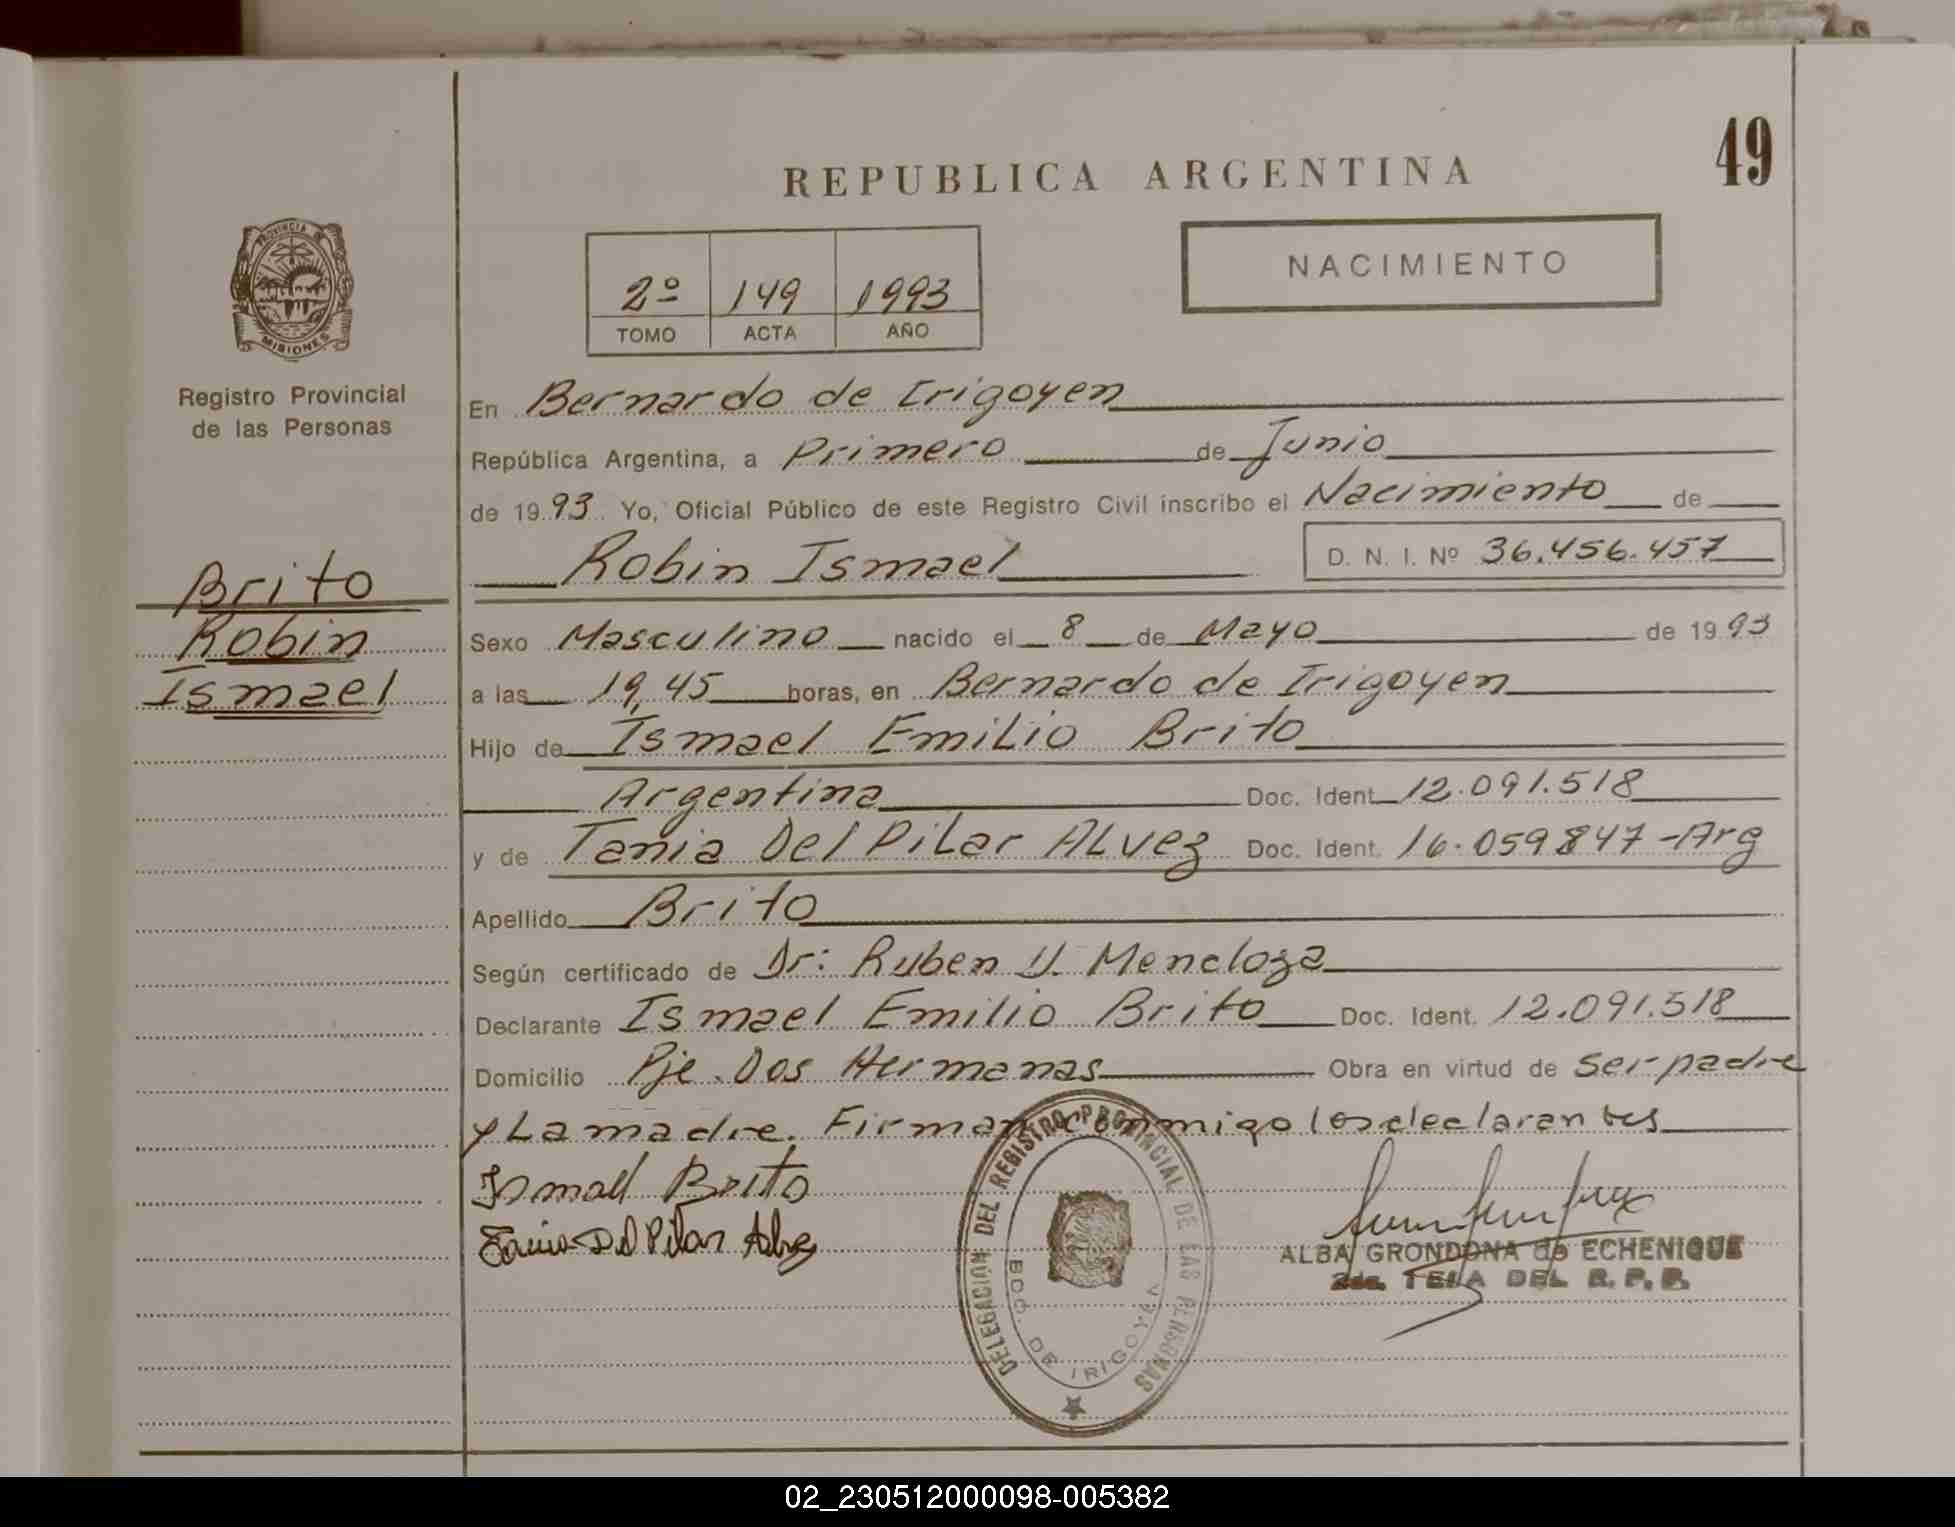 49
REPUBLICA ARGENTINA
NACIMIENTO
2º 149 1993
TOMO ACTA AÑO
PROVINCIA DE
MISIONES
Registro Provincial
de las Personas
Brito
Robin
Ismael
En Bernardo de Irigoyen
República Argentina, a Primero de Junio
de 1993. Yo, Oficial Público de este Registro Civil inscribo el Nacimiento de
Robin Ismael D. N. I. Nº 36.456.457
Sexo Masculino nacido el 8 de Mayo de 1993
a las 19,45 horas, en Bernardo de Irigoyen
Hijo de Ismael Emilio Brito
Argentina Doc. Ident. 12.091.518
y de Tania Del Pilar Alvez Doc. Ident. 16.059847-Arg
Apellido Brito
Según certificado de Dr: Ruben U. Mendoza
Declarante Ismael Emilio Brito Doc. Ident. 12.091.518
Domicilio Pje. Dos Hermanas Obra en virtud de ser padre
y La madre. Firman conmigo los declarantes
Ismael Brito
Tania Del Pilar Alvez
DELEGACIÓN DEL REGISTRO PROVINCIAL DE LAS PERSONAS
BDO. DE IRIGOYEN
ALBA GRONDONA de ECHENIQUE
DEL R. P. P.
02_230512000098-005382